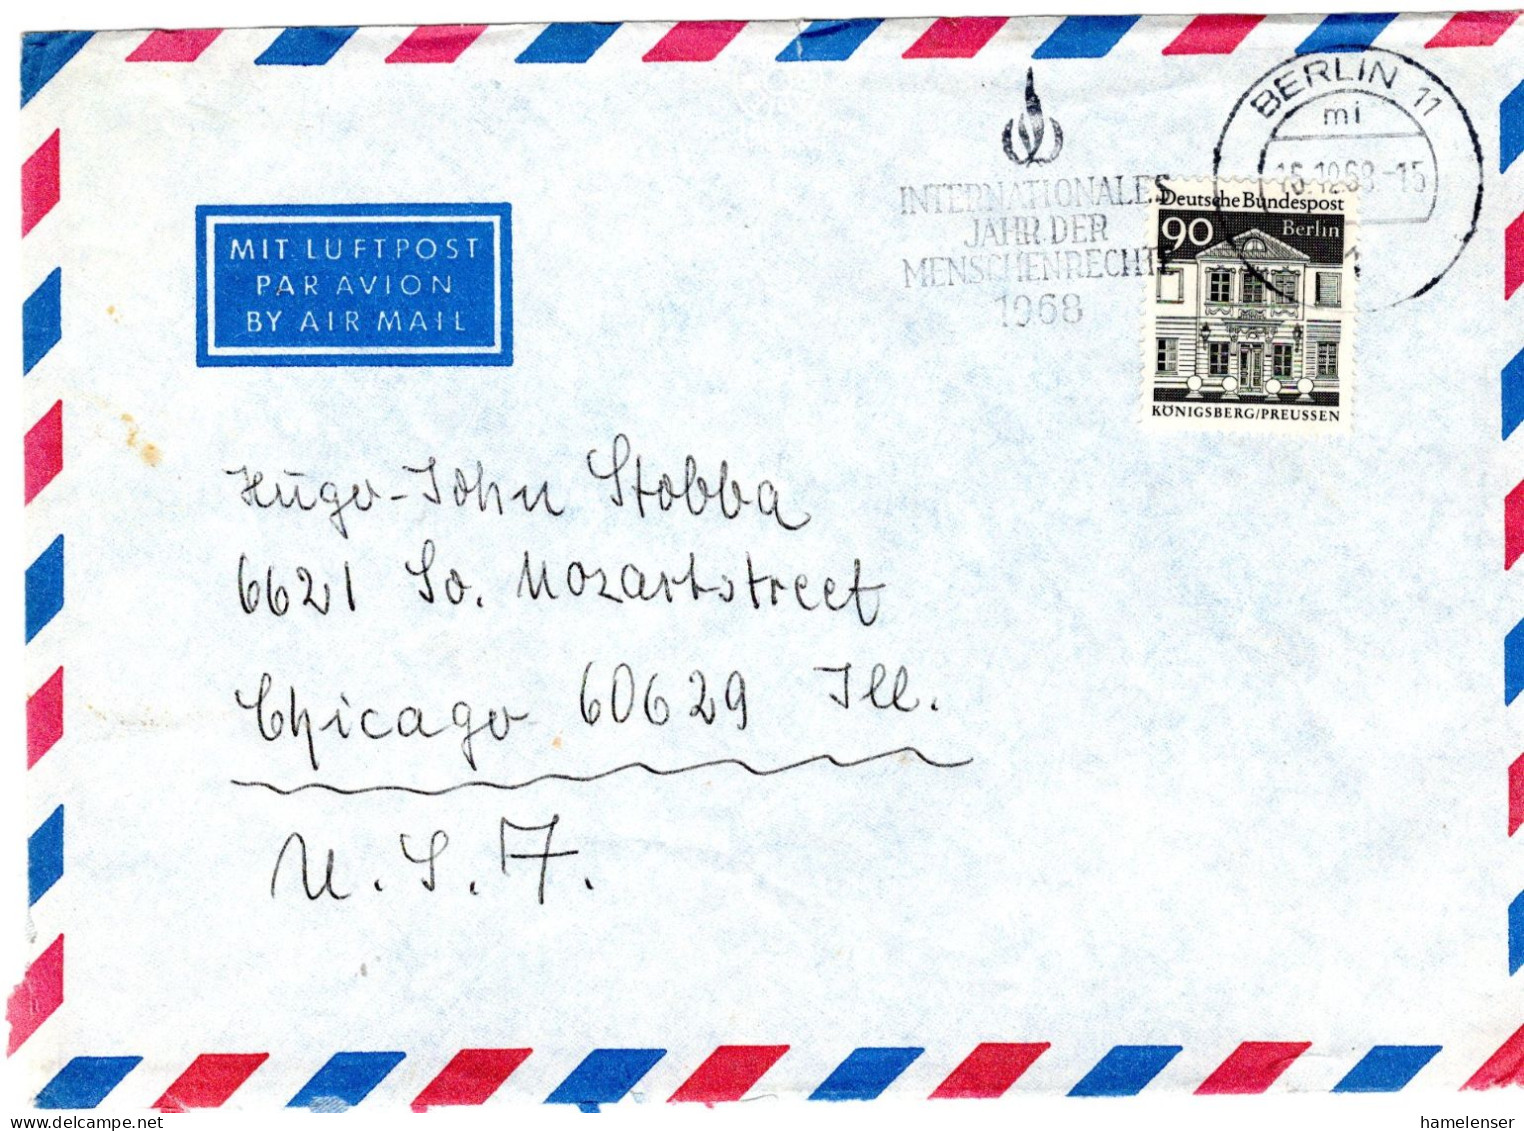 BERLIN 11
mi
16.10.68.-15
INTERNATIONALES
JAHR DER
MENSCHENRECHTE
1968
Deutsche Bundespost
90 Berlin
KÖNIGSBERG/PREUSSEN
MIT LUFTPOST
PAR AVION
BY AIR MAIL
Hugo-John Stobba
6621 So. Mozartstreet
Chicago 60629 Ill.
U.S.A.
hamelenser